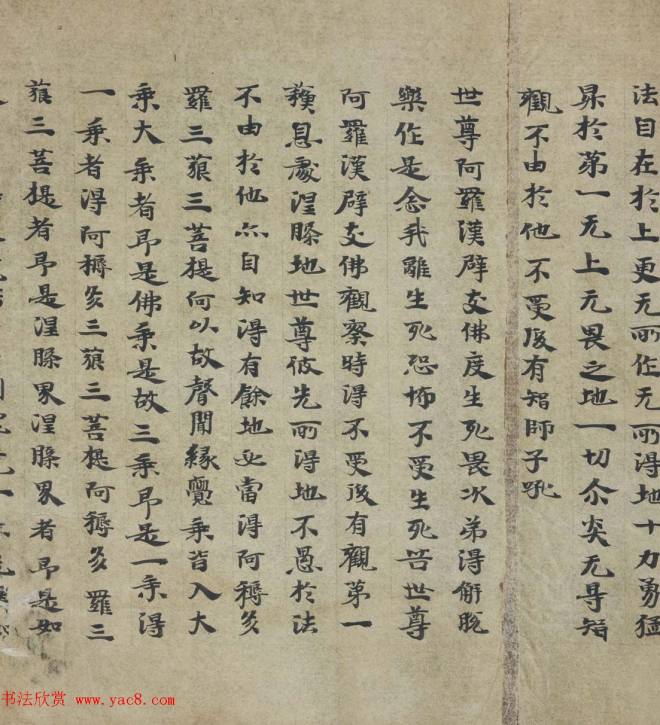 法自在於上更无所作无所得地十力勇猛
昇於第一无上无畏之地一切尒炎无㝵智
觀不由於他不受後有智師子吼
世尊阿羅漢辟支佛度生死畏次弟得解脫
樂作是念我離生死恐怖不受生死苦世尊
阿羅漢辟支佛觀察時得不受後有觀第一
蘓息處涅槃地世尊彼先所得地不愚於法
不由於他亦自知得有餘地必當得阿耨多
羅三藐三菩提何以故聲聞緣覺乘皆入大
乘大乘者即是佛乘是故三乘即是一乘得
一乘者得阿耨多羅三藐三菩提阿耨多羅三
藐三菩提者即是涅槃界涅槃界者即是如
书法欣赏 www.yac8.com